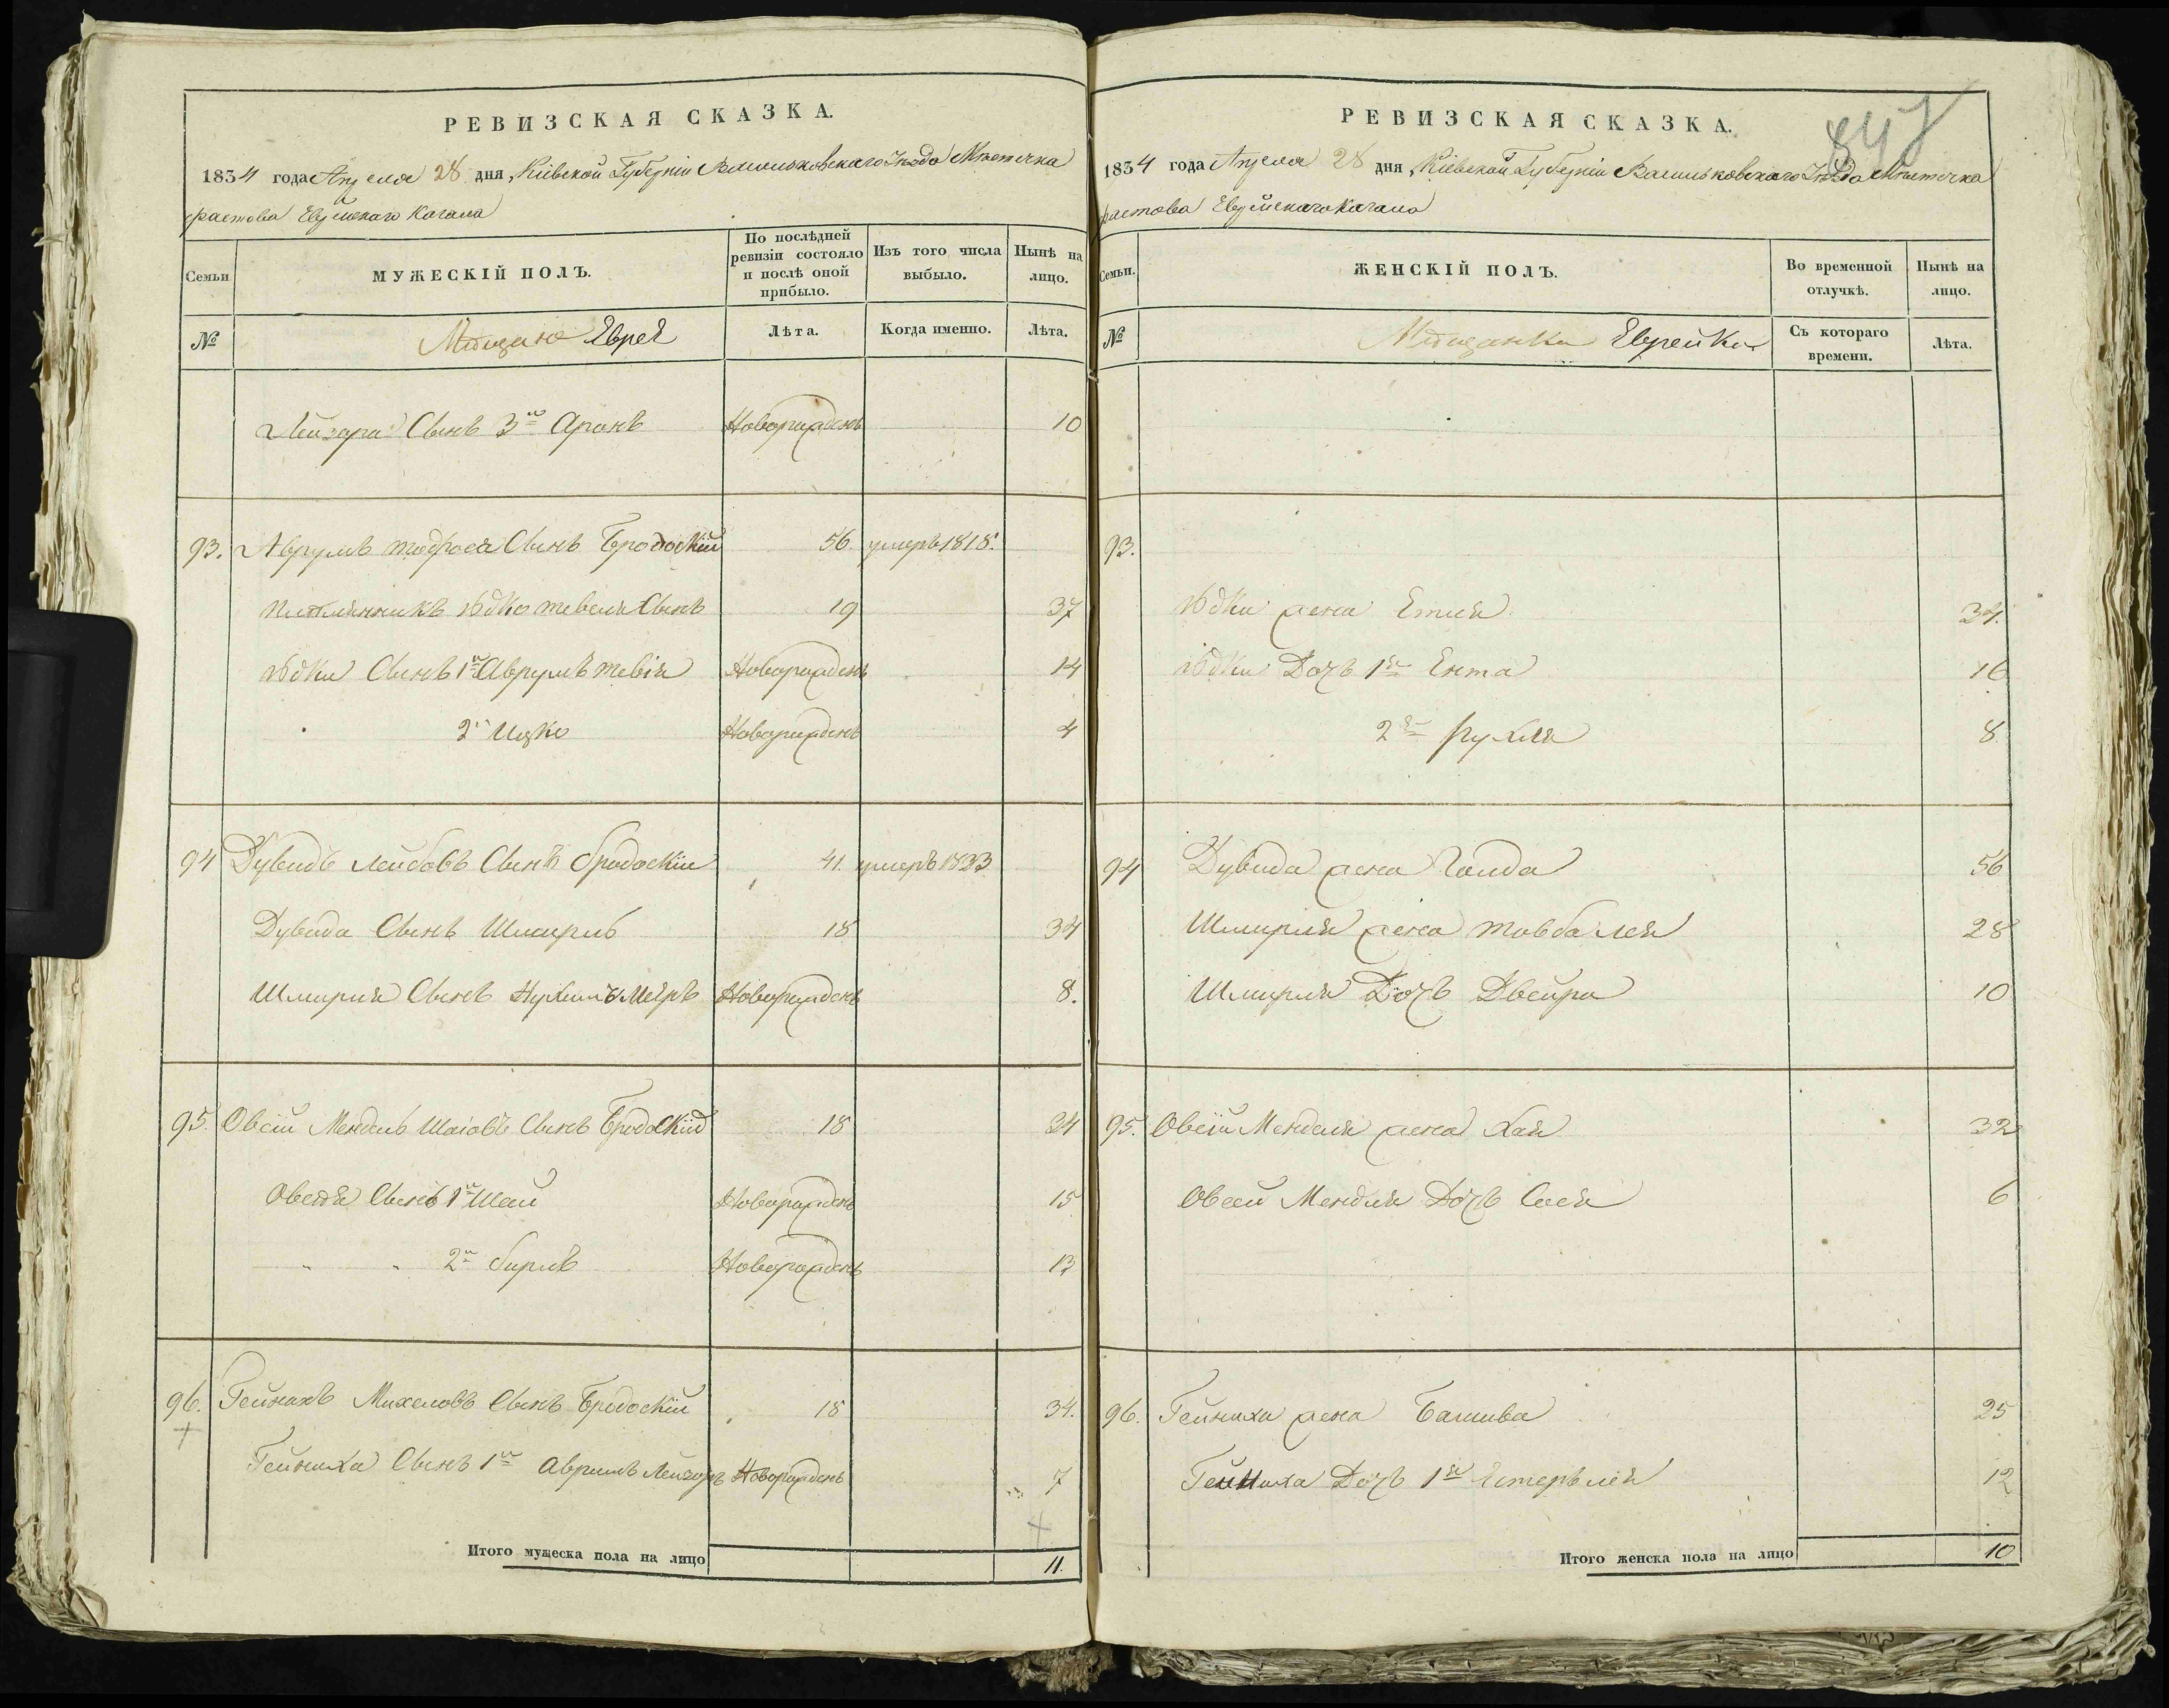 РЕВИЗСКАЯ СКАЗКА.
1834 года Апреля 28 дня, Кіевской Губерніи Васильковскаго Уѣзда Мѣстечка
фастова Еврейскаго Кагала
Семьи
МУЖЕСКІЙ ПОЛЪ.
По послѣдней ревизіи состояло и послѣ оной прибыло.
Изъ того числа выбыло.
Нынѣ на лицо.
№
Мѣщане Евреи
Лѣта.
Когда именно.
Лѣта.
Лейзара Сынъ 3й Аронъ Новорожденъ 10
93. Аврумъ Тодроса Сынъ Бродоскій 56. умеръ 1818.
племянникъ Юдко тевеля Сынъ 19 37
Юдки Сынъ 1й Аврумъ тевія Новорожденъ 14
2й Ицко Новорожденъ 4
94 Дувидъ Лейбовъ Сынъ бродоскій 41. умеръ 1833
Дувида Сынъ Шмирль 18 34
Шмирля Сынъ Нухимъ Меиръ Новорожденъ 8.
95. Овсій Мендель Шаіовъ Сынъ Бродоскій 18 34
Овсея Сынъ 1й Шай Новорожденъ 15
" " 2й бирлъ Новорожденъ 13
96. Гейнихъ Михеловъ Сынъ Бродоскій 18 34.
Гейниха Сынъ 1й Аврумъ Лейзоръ Новорожденъ 7
Итого мужеска пола на лицо 11.
РЕВИЗСКАЯ СКАЗКА.
1834 года Апреля 28 дня, Кіевской Губерніи Васильковскаго Уѣзда Мѣстечка
фастова Еврейскаго Кагала
Семьи.
ЖЕНСКІЙ ПОЛЪ.
Во временной отлучкѣ.
Нынѣ на лицо.
№
Мѣщанки Еврейки
Съ котораго времени.
Лѣта.
93.
Юдки жена Етля 34.
Юдки Дочь 1я Ента 16
2я Рухля 8
94 Дувида жена Голда 56
Шмирля жена товба лея 28
Шмирля Дочь Двейра 10
95. Овсій Менделя жена Хая 32
Овсей Мендля Дочь Сося 6
96. Гейниха жена Башива 25
Гейниха Дочь 1я Естеръ лея 12
Итого женска пола на лицо 10